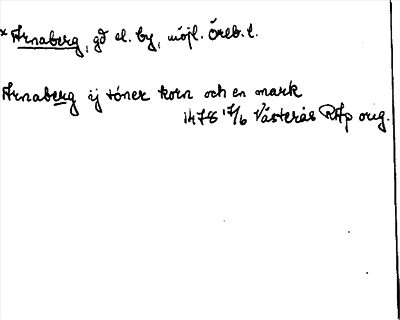 * Arnaberg, gd el. by, möjl. Öreb. l.
Arnaberg ij töner korn och en mark
1478 17/6 Västerås RAp orig.